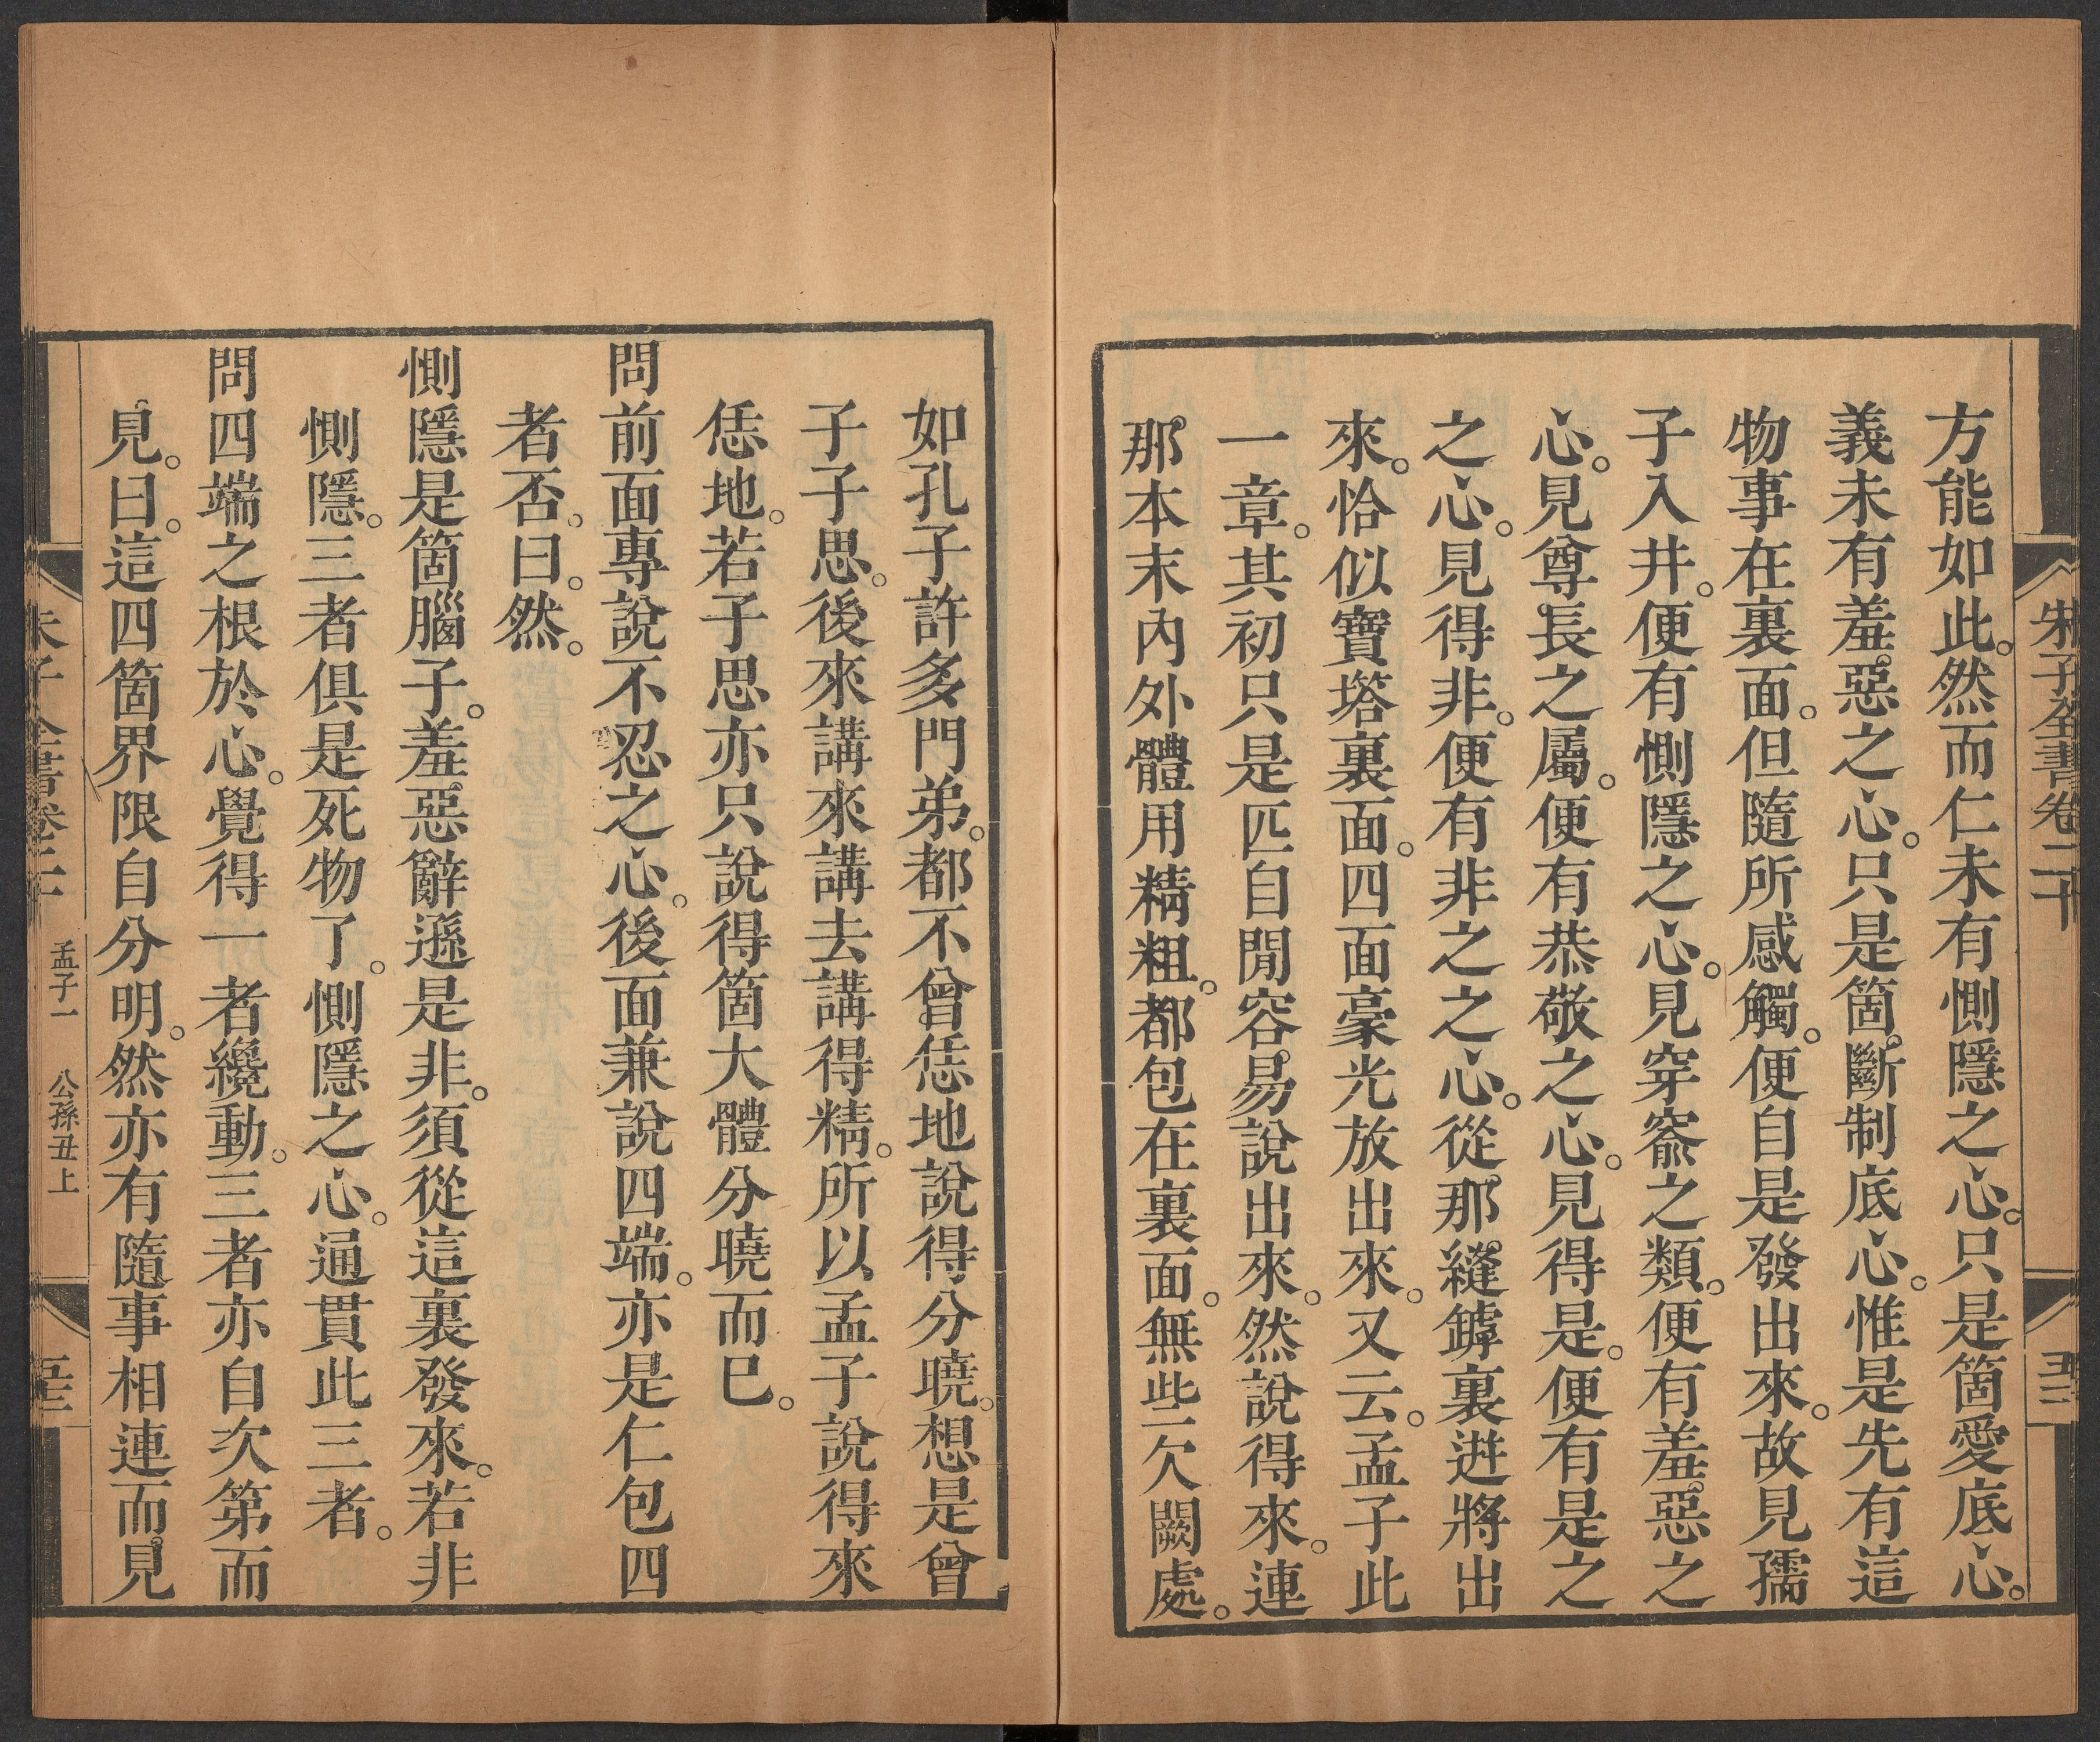 朱子全書卷二十
五二
方能如此。然而仁未有惻隱之心。只是箇愛底心。
義未有羞惡之心。只是箇斷制底心。惟是先有這
物事在裏面。但隨所感觸。便自是發出來。故見孺
子入井。便有惻隱之心。見穿窬之類。便有羞惡之
心。見尊長之屬。便有恭敬之心。見得是。便有是之
之心。見得非。便有非之之心。從那縫罅裏迸將出
來。恰似寶塔裏面。四面豪光放出來。又云。孟子此
一章。其初只是匹自閒容易說出來。然說得來。連
那本末內外體用精粗。都包在裏面。無些欠闕處。
如孔子許多門弟。都不曾恁地說得分曉。想是曾
子子思。後來講來講去講得精。所以孟子說得來
恁地。若子思亦只說得箇大體分曉而已。
問前面專說不忍之心。後面兼說四端。亦是仁包四
者否。曰。然。
惻隱是箇腦子。羞惡辭遜是非。須從這裏發來。若非
惻隱。三者俱是死物了。惻隱之心。通貫此三者。
問四端之根於心。覺得一者纔動。三者亦自次第而
見。曰。這四箇界限自分明。然亦有隨事相連而見
朱子全書卷二十
孟子一
公孫丑上
五三